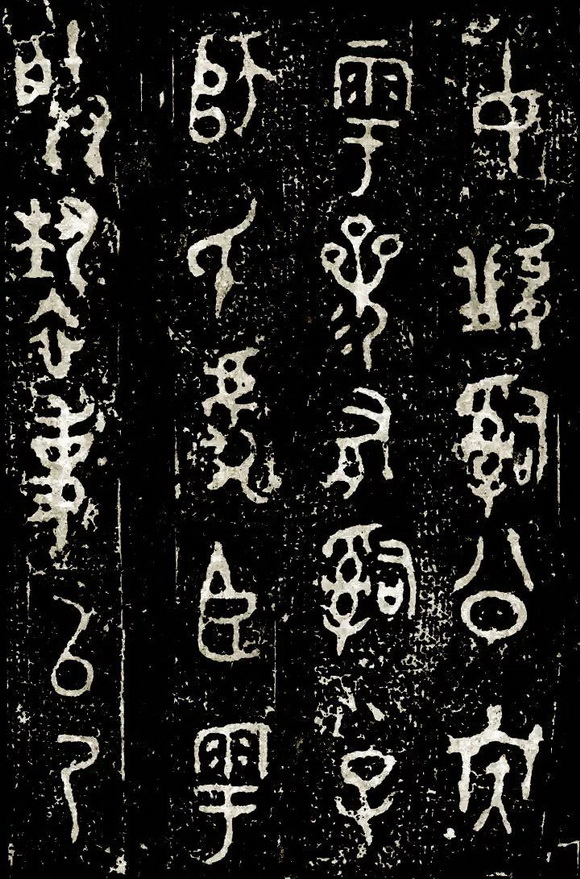 𤔲公族
雩參有𤔲小子
師氏虎臣雩
朕褻事以乃